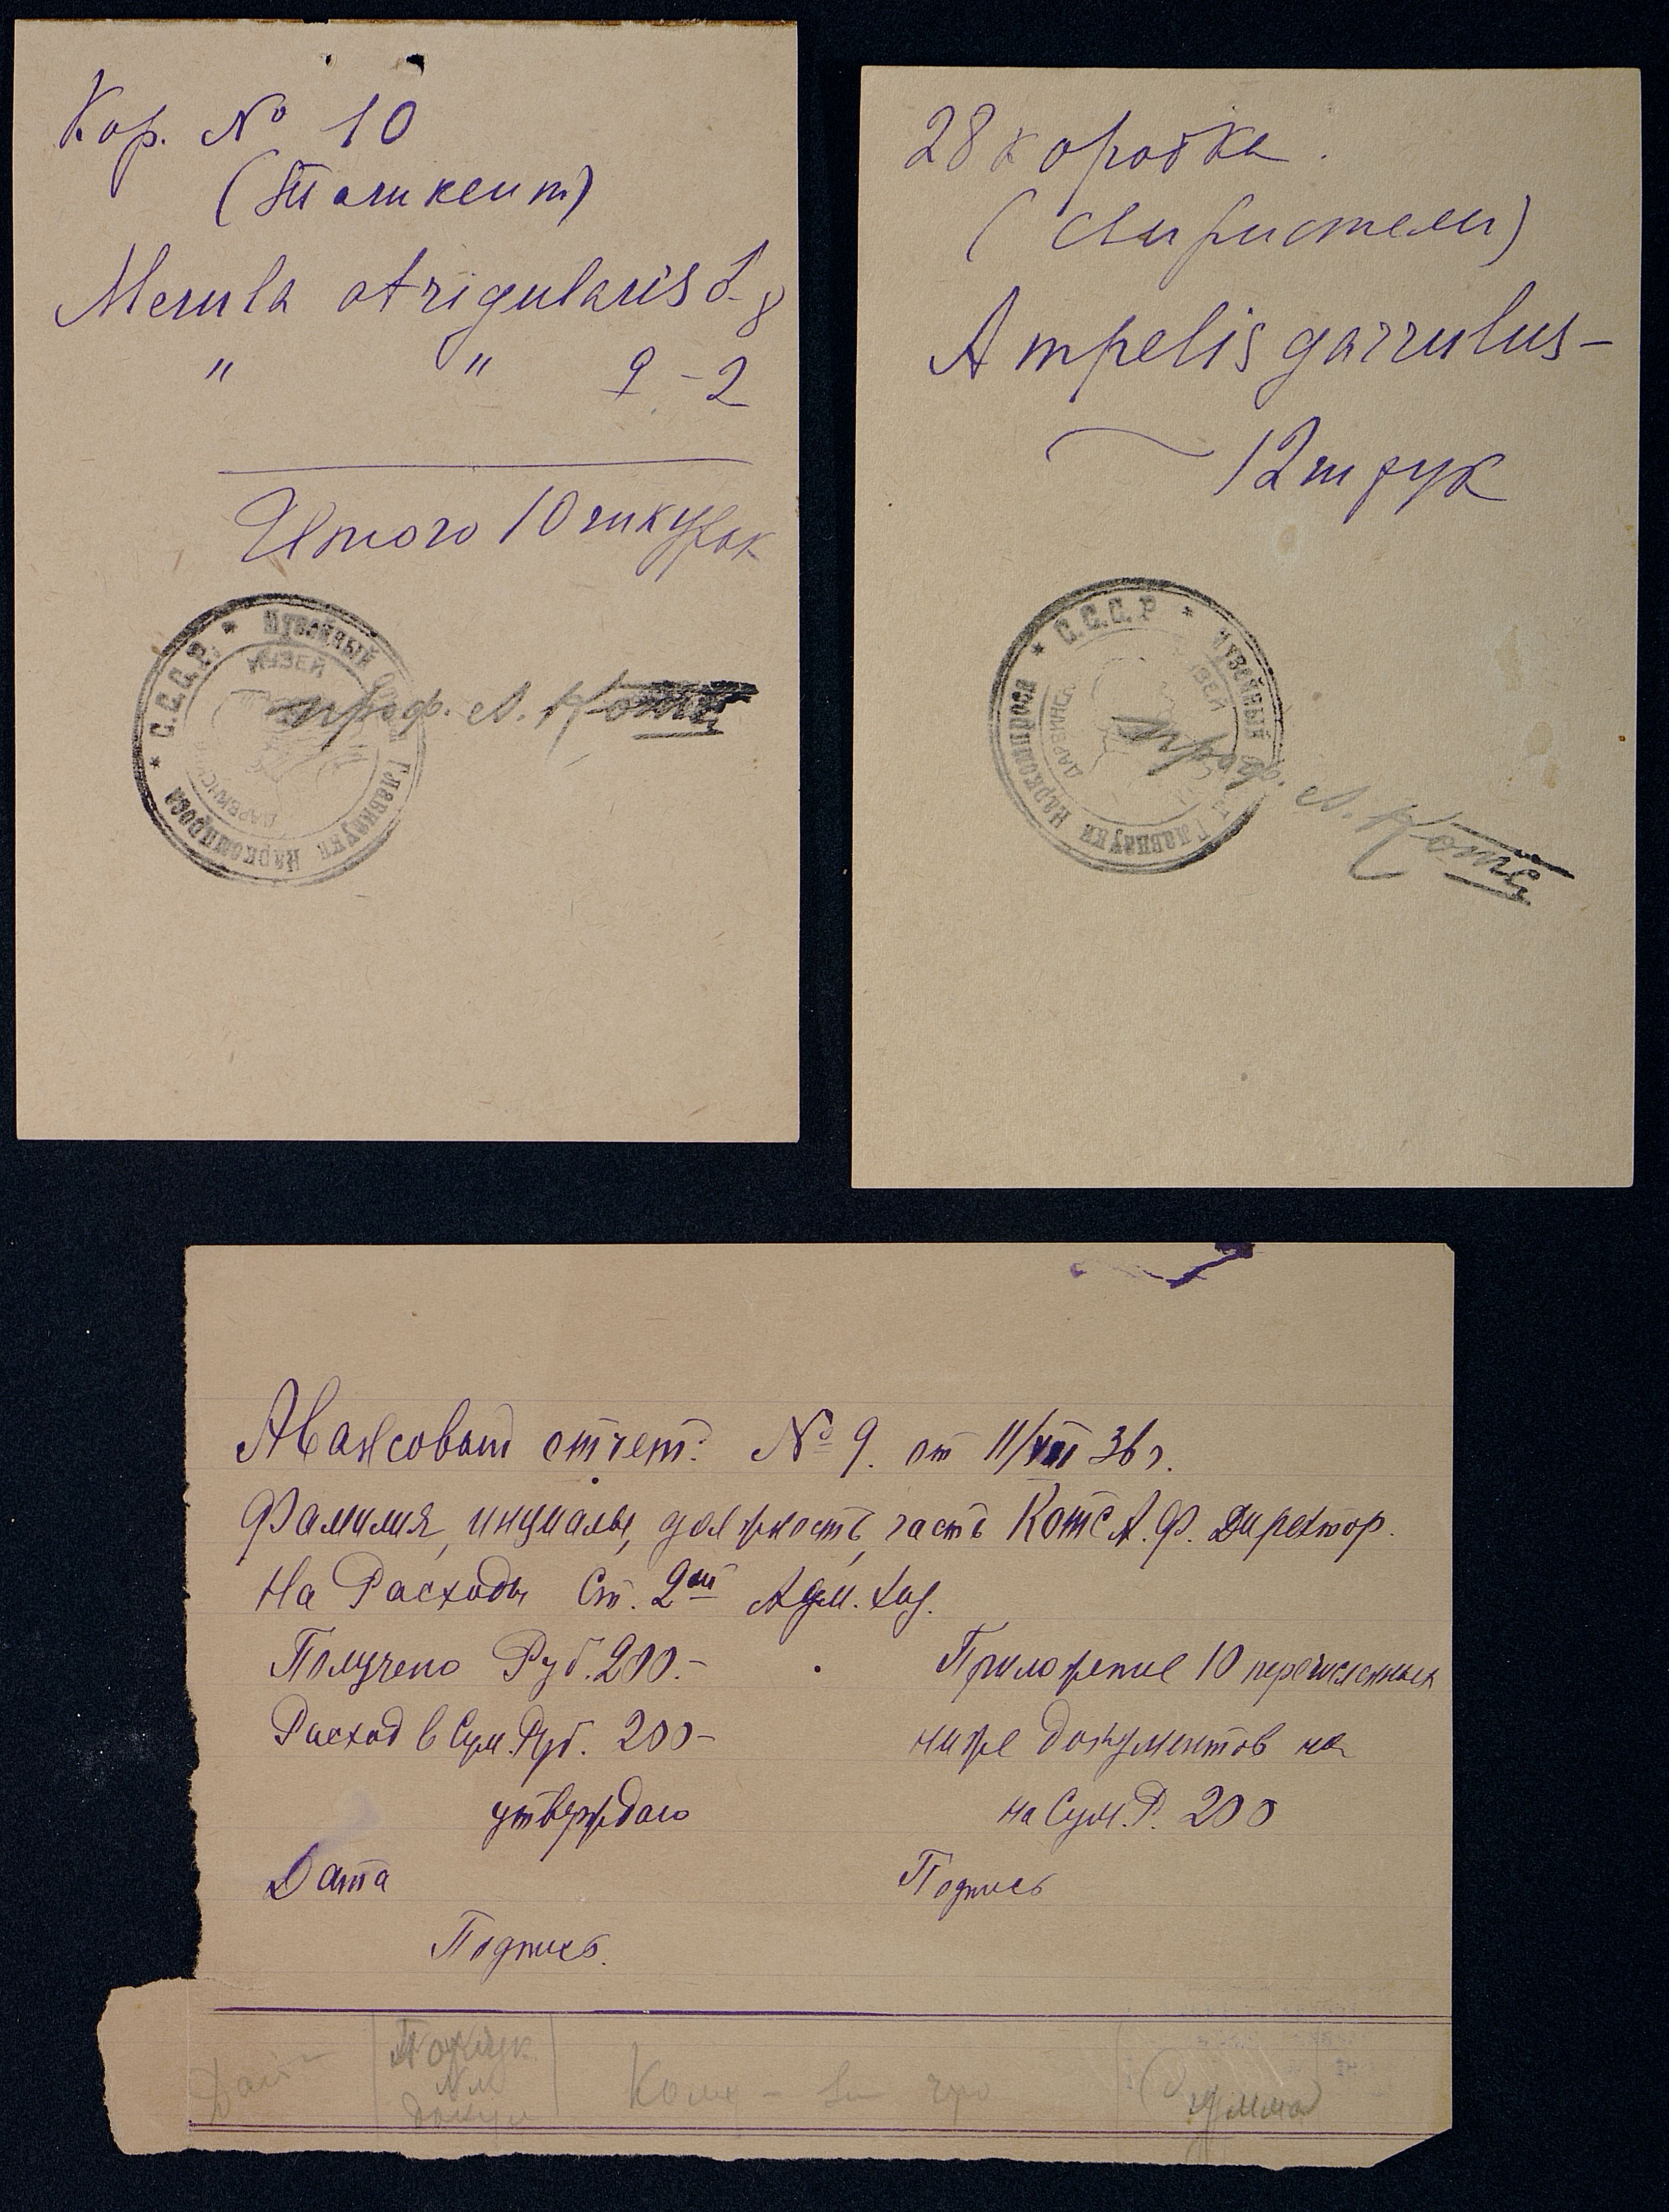 Кор. № 10
(Ташкент)
Merula atrigularis ♂ - 8
" " ♀ - 2
Итого 10 шкурок
* С.С.С.Р. * Музейный Отдел Главнауки Наркомпроса
ДАРВИНСКИЙ МУЗЕЙ
проф. А. Котс
28 коробка.
(Свиристели)
Ampelis garrulus -
12 штук
* С.С.С.Р * Музейный Главнауки Наркомпроса
ДАРВИНСК. МУЗЕЙ
проф. А. Котс
Авансовый отчет: № 9. от 11/VIII 36 г.
Фамилия, инициалы, должность, часть Котс А.Ф. Директор.
На Расходы Ст. 2ой Адм. Хоз.
Получено Руб. 200.-
Приложение 10 перечисленных
Расход в Сум. Руб. 200-
ниже документов на
утверждаю
на Сум. Р. 200
Дата
Подпись
Подпись.
Дата
Порядк
№№
докум
Кому - за что
Сумма